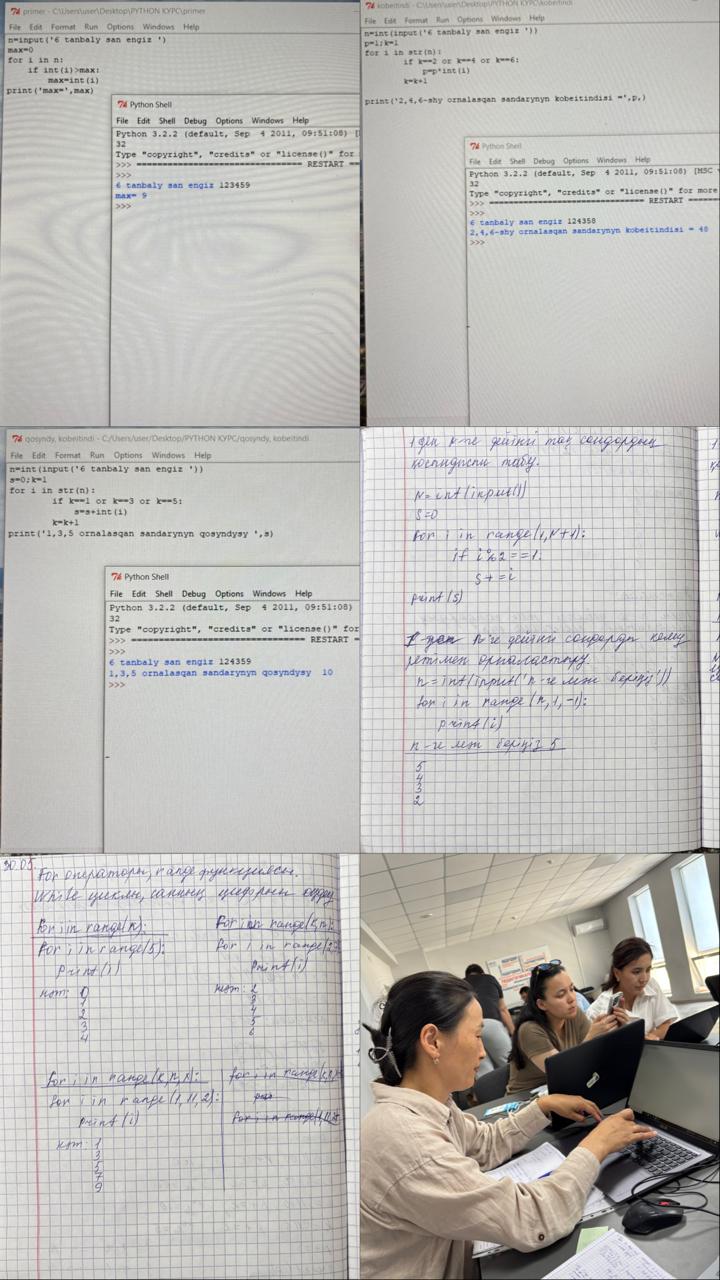 primer - C:\Users\user\Desktop\PYTHON КУРС\primer
File Edit Format Run Options Windows Help
n=input('6 tanbaly san engiz ')
max=0
for i in n:
if int(i)>max:
max=int(i)
print('max=',max)
Python Shell
File Edit Shell Debug Options Windows Help
Python 3.2.2 (default, Sep 4 2011, 09:51:08) [
32
Type "copyright", "credits" or "license()" for
>>> ================================ RESTART ==
>>>
6 tanbaly san engiz 123459
max= 9
>>>
kobeitindi - C:\Users\user\Desktop\PYTHON КУРС\kobeitindi
File Edit Format Run Options Windows Help
n=int(input('6 tanbaly san engiz '))
p=1;k=1
for i in str(n):
if k==2 or k==4 or k==6:
p=p*int(i)
k=k+1
print('2,4,6-shy ornalasqan sandarynyn kobeitindisi =',p,)
Python Shell
File Edit Shell Debug Options Windows Help
Python 3.2.2 (default, Sep 4 2011, 09:51:08) [MSC
32
Type "copyright", "credits" or "license()" for more
>>> ================================ RESTART ======
>>>
6 tanbaly san engiz 124358
2,4,6-shy ornalasqan sandarynyn kobeitindisi = 48
>>>
qosyndy, kobeitindi - C:/Users/user/Desktop/PYTHON КУРС/qosyndy, kobeitindi
File Edit Format Run Options Windows Help
n=int(input('6 tanbaly san engiz '))
s=0;k=1
for i in str(n):
if k==1 or k==3 or k==5:
s=s+int(i)
k=k+1
print('1,3,5 ornalasqan sandarynyn qosyndysy ',s)
Python Shell
File Edit Shell Debug Options Windows Help
Python 3.2.2 (default, Sep 4 2011, 09:51:08)
32
Type "copyright", "credits" or "license()" for
>>> ================================ RESTART =
>>>
6 tanbaly san engiz 124359
1,3,5 ornalasqan sandarynyn qosyndysy 10
>>>
N=int(input())
S=0
for i in range(1,N+1):
if i%2==1:
s+=i
print(s)
n-ге дейінгі сандарды кему
ретімен орналастыру.
n=int(input('n-ге мән беріңіз'))
for i in range(n,1,-1):
print(i)
n-ге мән беріңіз 5
5
4
3
2
30.05
For операторы, range функциясы.
While циклы,
for i in range(n):
for i in range(5):
print(i)
нәт: 0
1
2
3
4
for i in range(
print(i)
нәт: 2
3
4
5
6
for i in range(1,11,2):
print(i)
нәт: 1
3
5
7
9